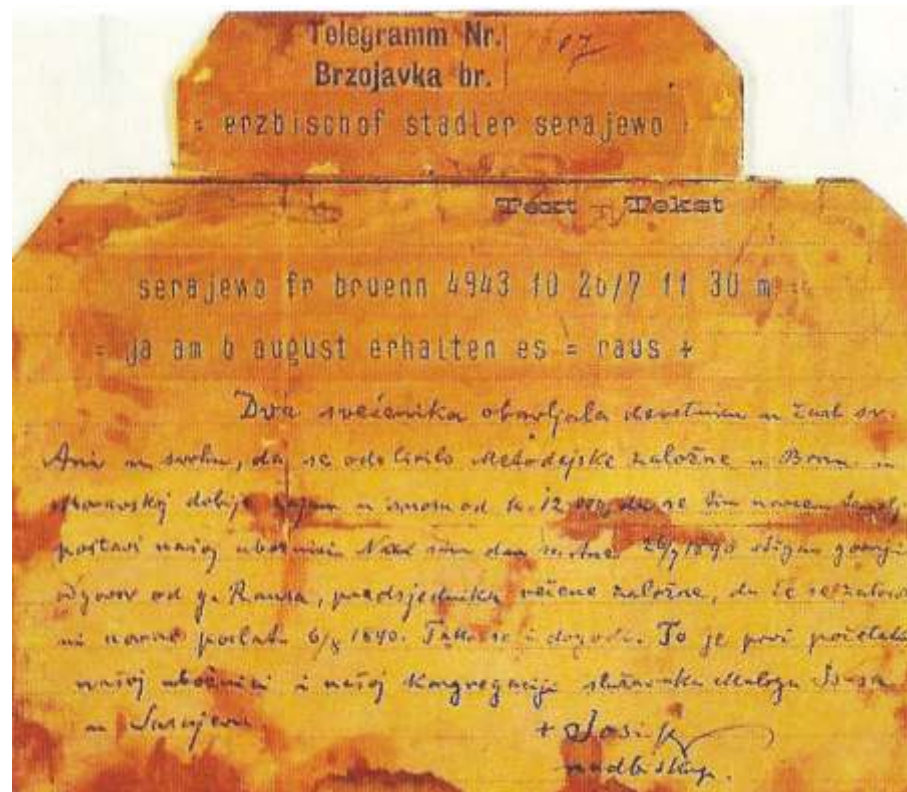 Telegramm Nr. 17
Brzojavka br.
= erzbischof stadler serajewo =
Text — Tekst
serajewo fr bruenn 4943 10 26/7 11 30 m =
= ja am 6 august erhalten es = raus +
Dva svećenika obavljala devetnicu u čast sv.
Ani u svrhu, da se od Ćirilo Metodejske založne u Brnu u
Moravskoj dobije zajam u iznosu od K. 12.000, da se tim novcem
postavi našoj ubožnici. Na sam dan sv. Ane 26/7 1890 stigao gornji
odgovor od g. Rausa, predsjednika rečene založne, da će se
ni novac poslati 6/8 1890. Tako se i dogodi. To je prvi početak
našoj ubožnici i našoj Kongregaciji služavnika Maloga Isusa
u Sarajevu.
+ Josip
nadbiskup.